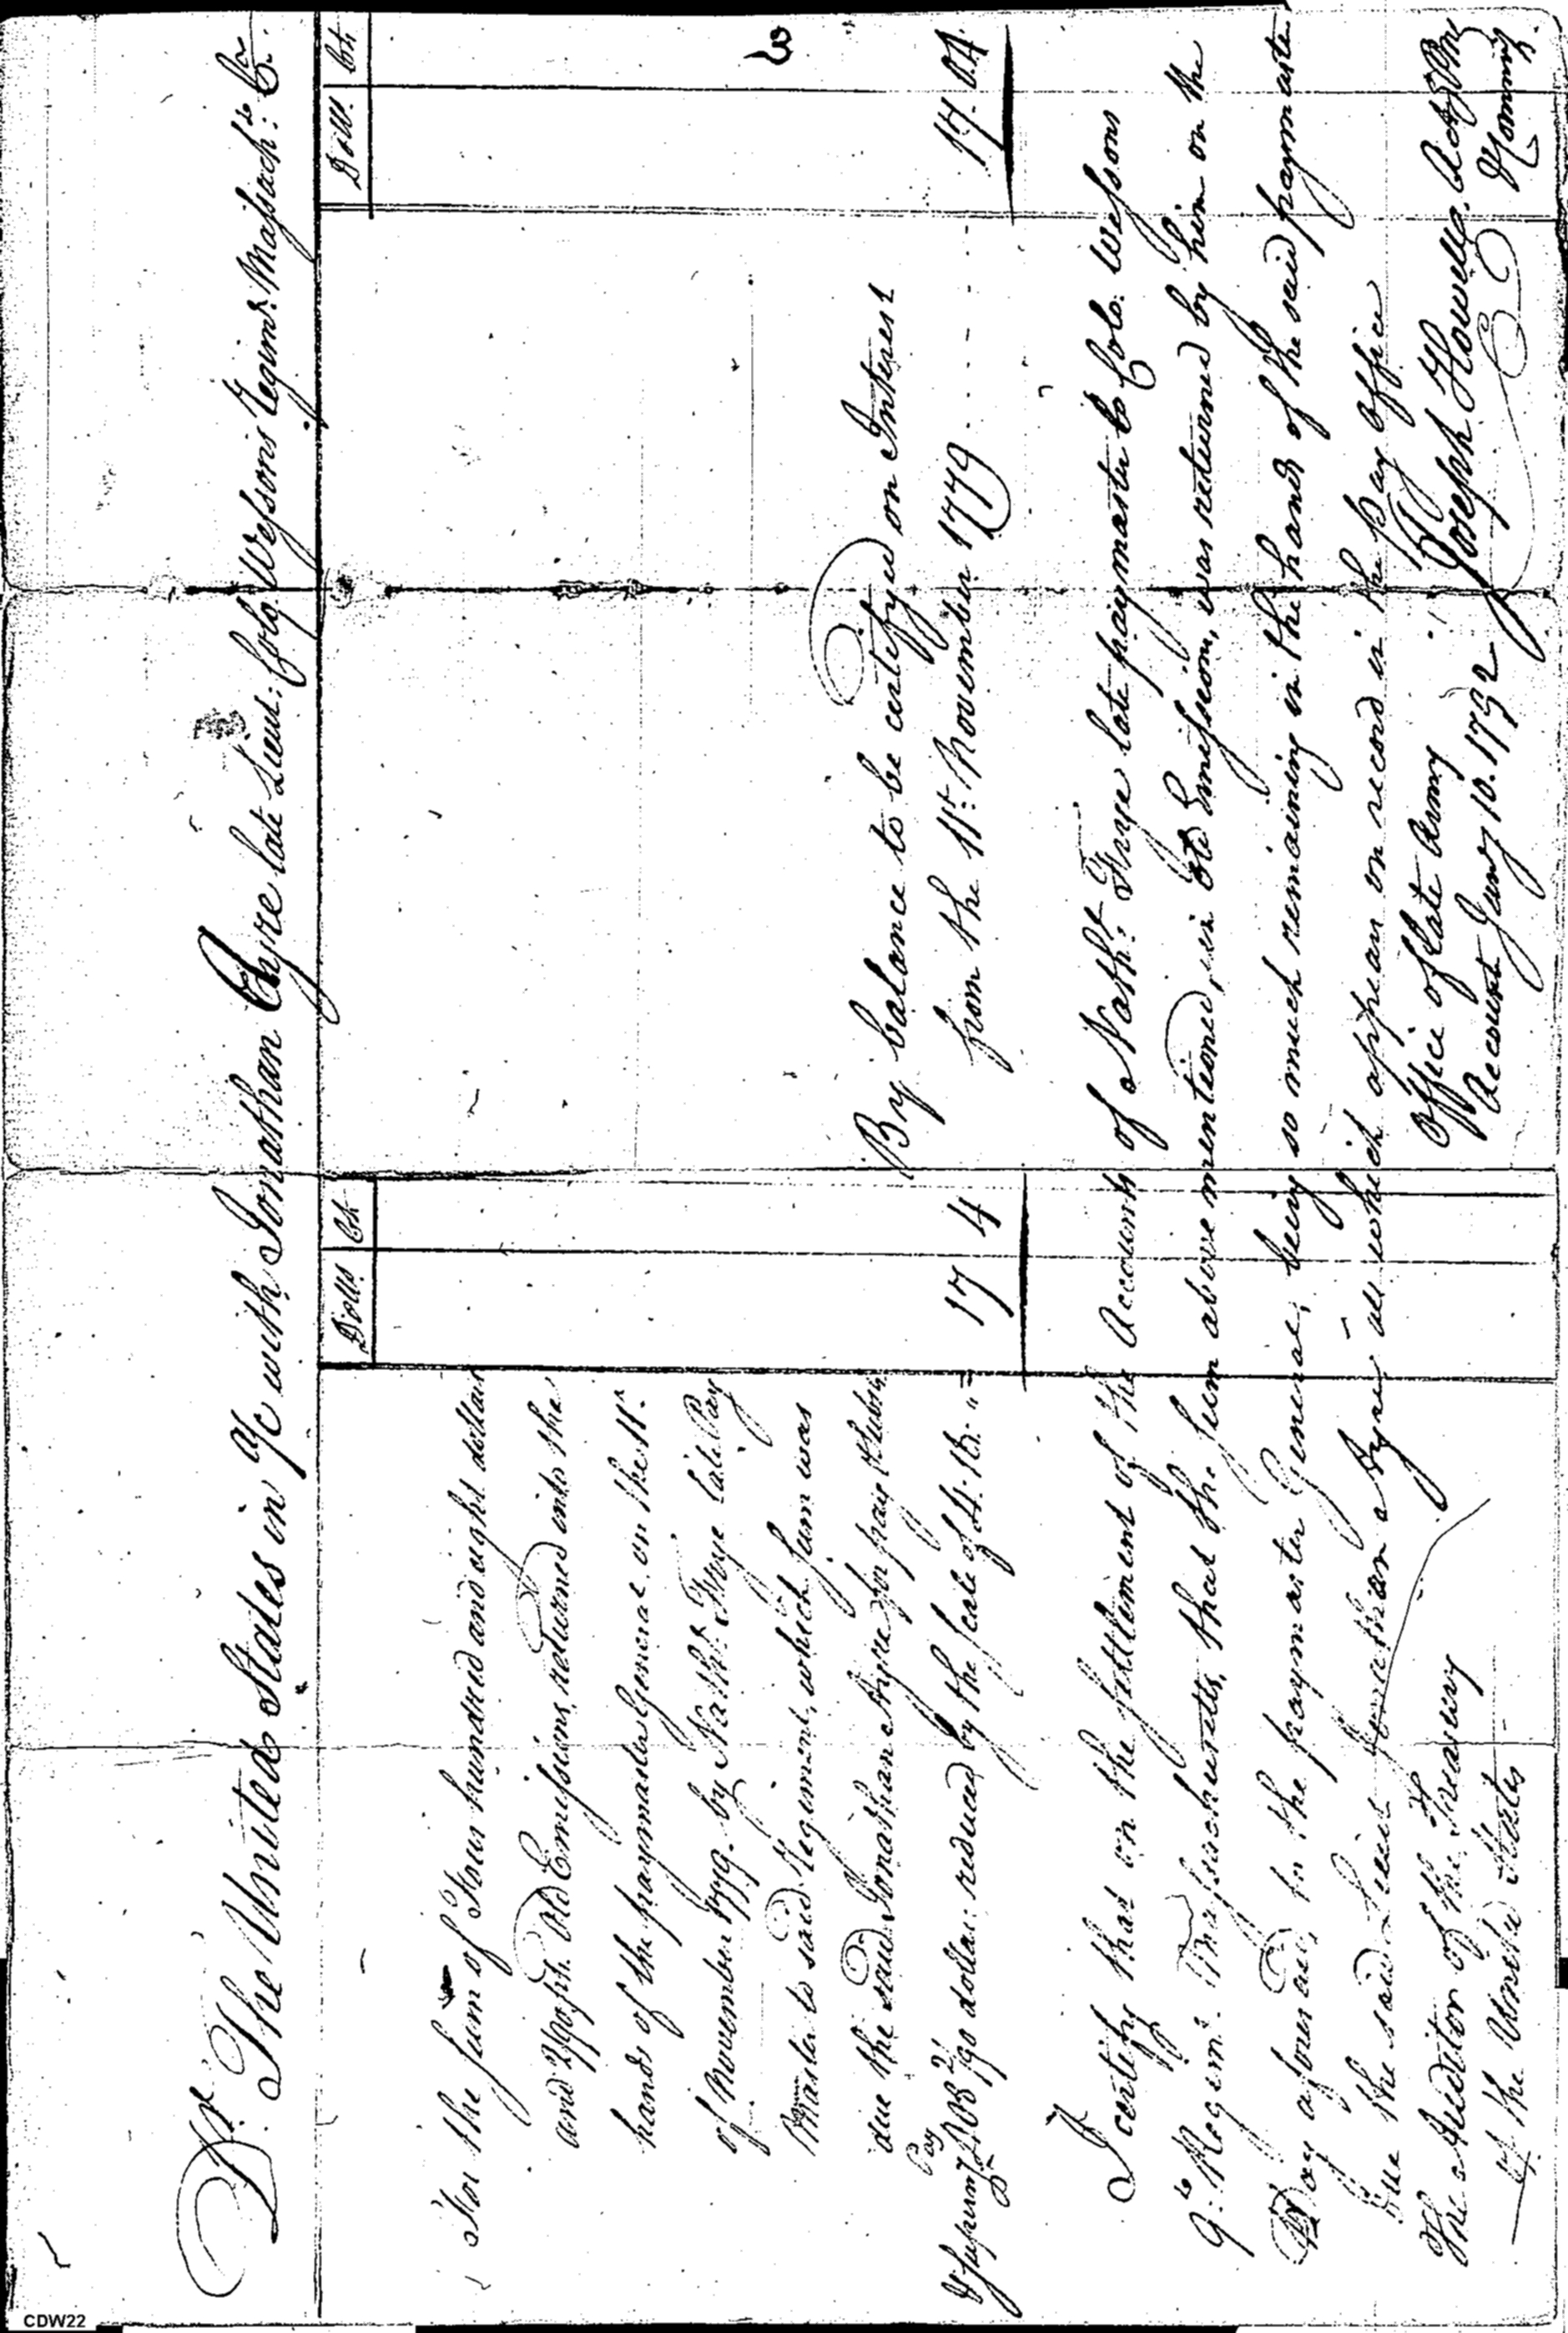 Dr. The United States in a/c with Jonathan Ayre late Lieut: Colo. Wessons Regimt. Massachts: Cr.
Dolls. Cts. Doll. Cts.
For the sum of Four hundred and eight dollars
and 2/90ths. Old Emissions, returned into the
hands of the paymaster General on the 11th.
of November 1779. by Nathl. Frye late Pay
Master to said Regiment, which sum was
due the said Jonathan Ayre for pay &
408 2/90 dollars reduced by the scale of 17 4
By balance to be certifyed on Interest
from the 11th. November 1779 17.04
I certify that on the settlement of the Accounts of Nathl. Frye late paymaster to Colo. Wessons
9th. Regimt. Massachusetts, that the sum above mentioned, in Old Emissions, was returned by him on the
Day aforesaid, to the paymaster General, being so much remaining in the hands of the said paymaster
due the said Lieut Jonathan Ayre, all which appear on record in the pay office
Office of late Army
Accounts Jany 10. 1792
Joseph Howell
The Auditor of the Treasury
of the United States
CDW22